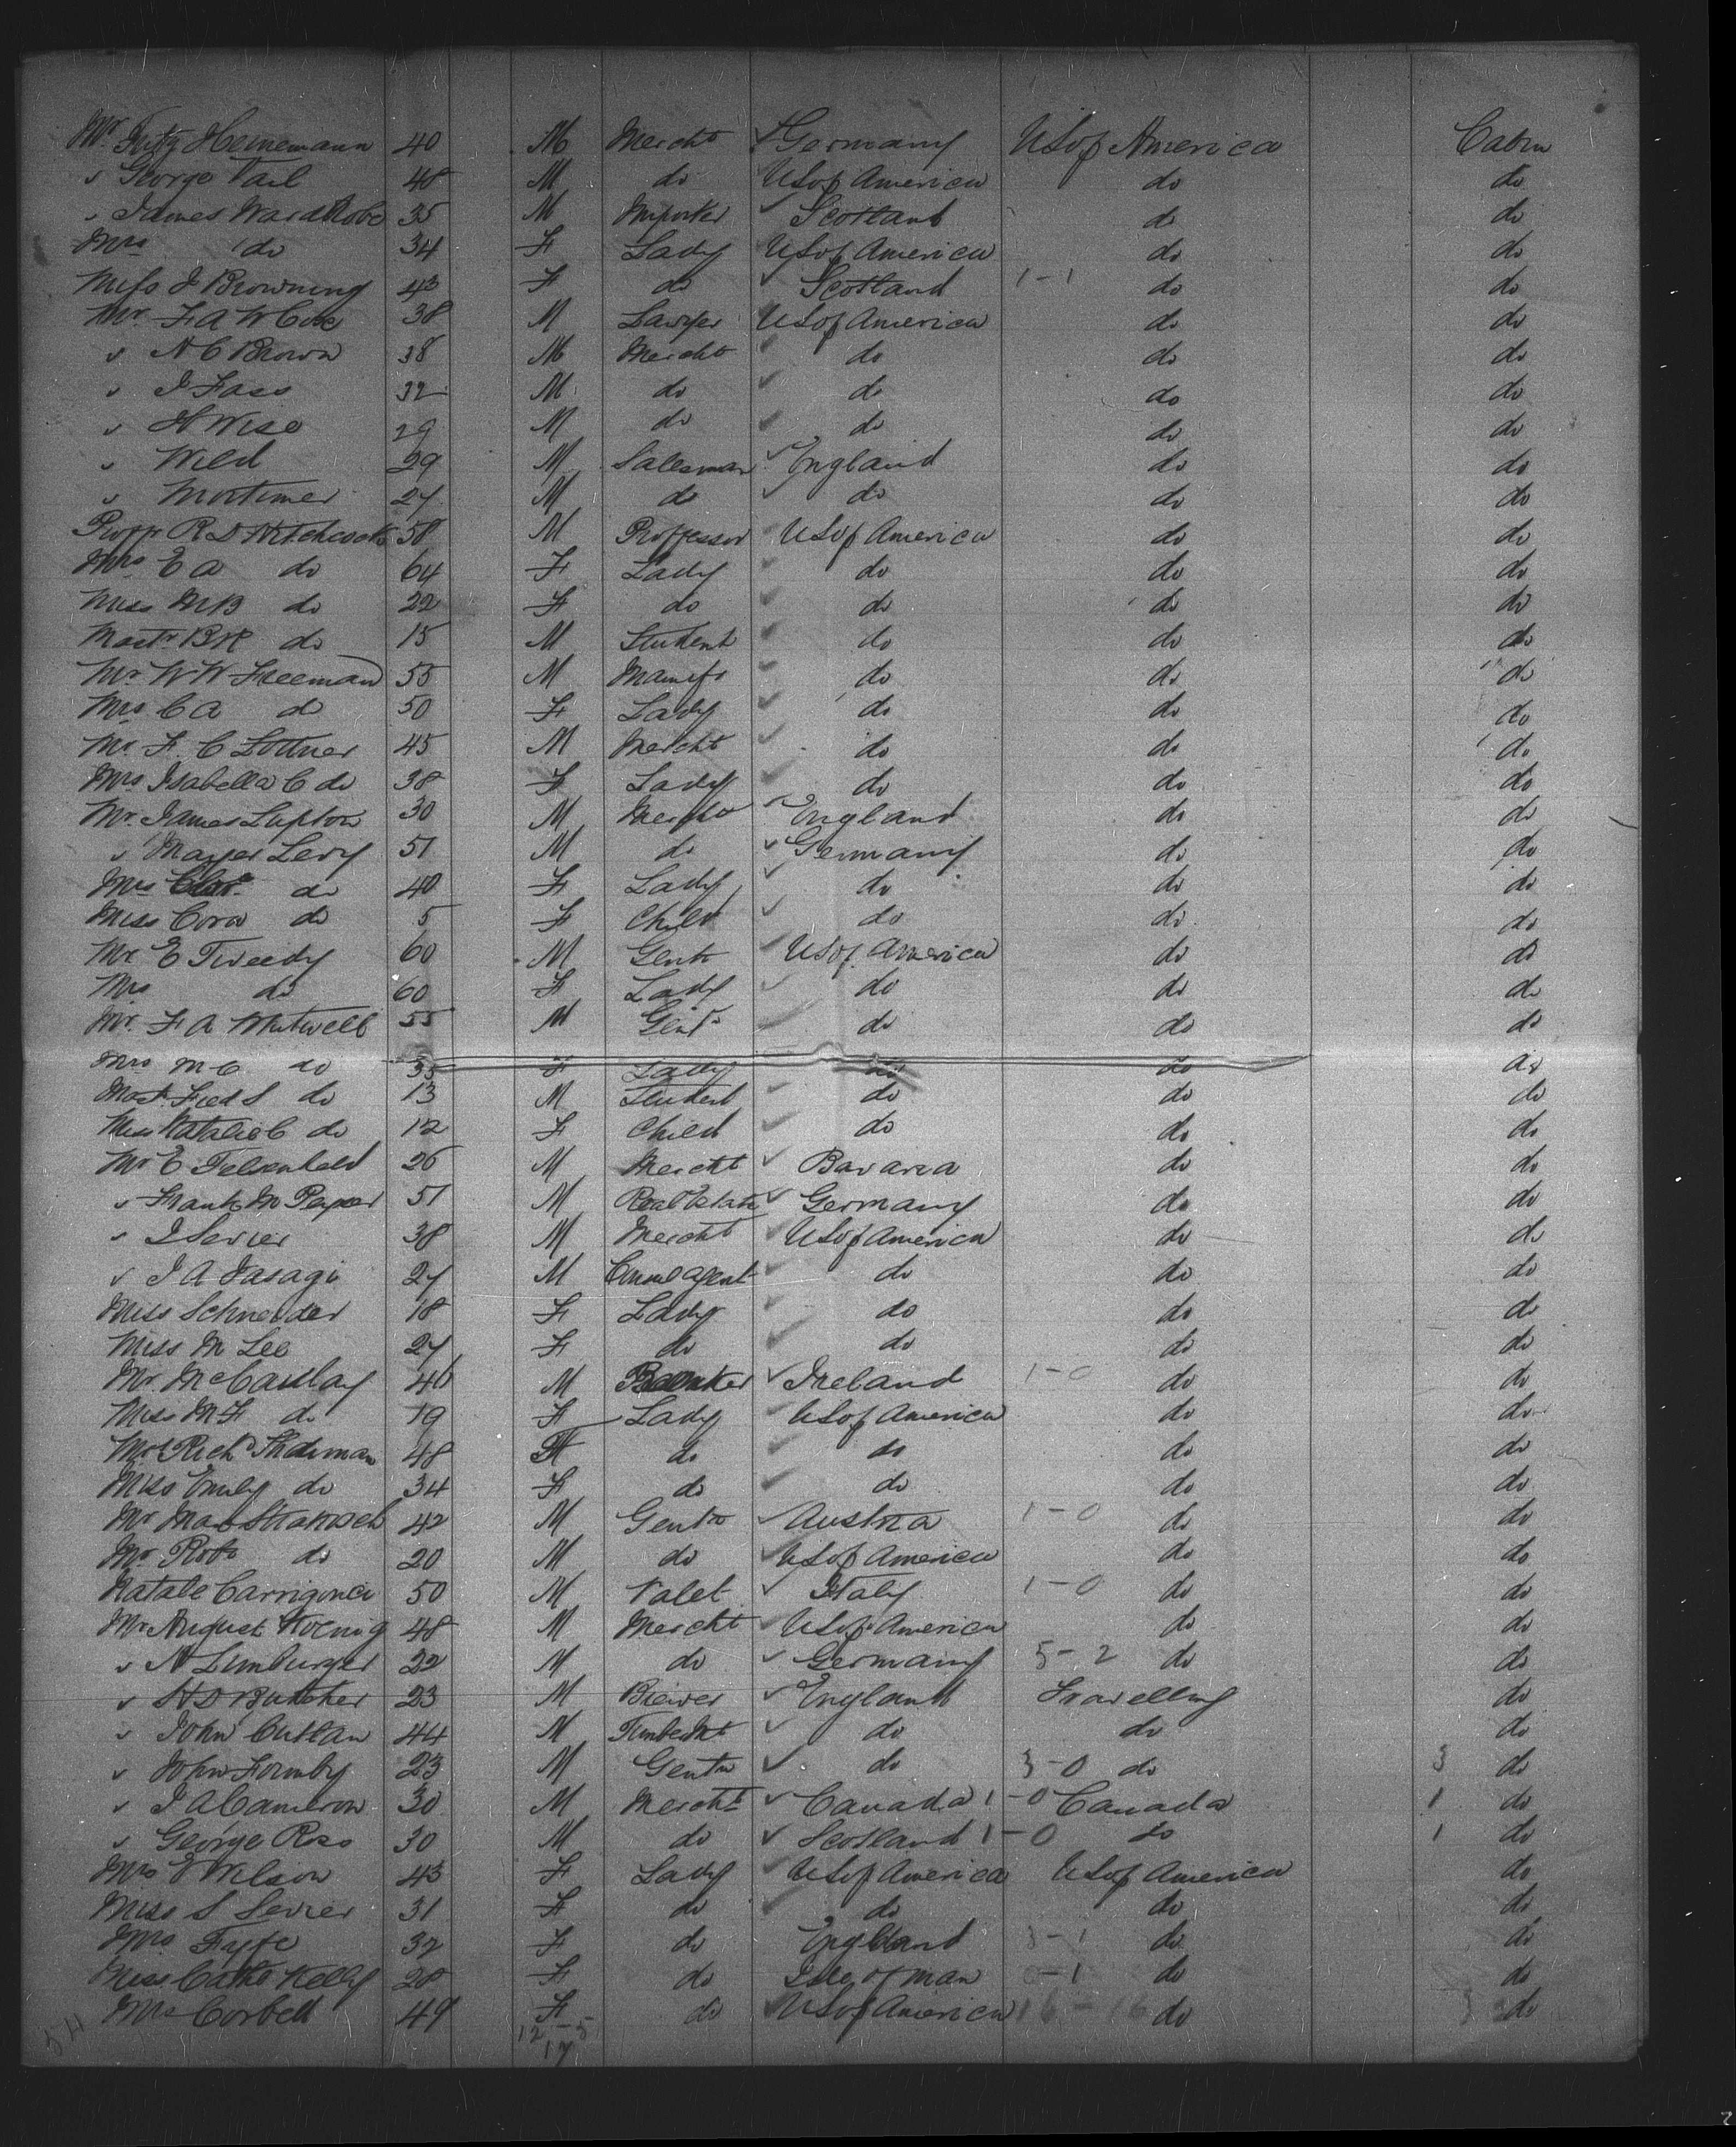 Mr. Fritz Heinemann 40 M Mercht Germany US of America Cabin
" George Vail 48 M do US of America do do
" James Wardrobe 35 M Importer Scotland do do
Mrs do 34 F Lady US of America do do
Miss J Browning 43 F do Scotland 1-1 do do
Mr. F. A W 38 M Lawyer US of America do do
" A C Brown 38 M Mercht do do do
" J Fass 32 M do do do do
" H Wise 29 M do do do do
" Wild 29 M Salesman England do do
" Mortimer 27 M do do do do
Proffr R D Hitchcock 58 M Proffessor US of America do do
Mrs E A do 64 F Lady do do do
Miss M B do 22 F do do do do
Mastr B H do 15 M Student do do do
Mr W W Freeman 55 M Manufr do do do
Mrs C A do 50 F Lady do do do
Mr. F. C Lottner 45 M Mercht do do do
Mrs Isabella C do 38 F Lady do do do
Mr. James Lupton 30 M Mercht England do do
" Mayer Levy 51 M do Germany do do
Mrs do 40 F Lady do do do
Miss Cora do 5 F Child do do do
Mr E Tweedy 60 M Gentn US of America do do
Mrs do 60 F Lady do do do
Mr. F A Whitwell 55 M Gentn do do do
Mrs M C do 35 F Lady do do do
Mast. Fred S do 13 M Student do do do
Miss Natalie C do 12 F Child do do do
Mr E Felsenheld 26 M Mercht Bavaria do do
" Frank M 51 M Real Estate Germany do do
" J Serier 38 M Mercht US of America do do
" J A 27 M Agent do do do
Miss Schneider 18 F Lady do do do
Miss M Lee 27 F do do do do
Mr. McCaulay 46 M Banker Ireland 1-0 do do
Miss M F do 19 F Lady US of America do do
Mrs Richd 48 F do do do do
Miss Emily do 34 F do do do do
Mr Max Strakosch 42 M Gentn Austria 1-0 do do
Mr Robt do 20 M do US of America do do
Natale 50 M Valet Italy 1-0 do do
Mr August Koenig 48 M Mercht US of America do do
" N Limburger 22 M do Germany 5-2 do do
" H D Butcher 23 M Brewer England Travelling do
" John Cutlan 44 M Timber Mt do do do
" John Formby 23 M Gentn do 3-0 do 3 do
" J A Cameron 30 M Mercht Canada 1-0 Canada 1 do
" George Ross 30 M do Scotland 1-0 do 1 do
Mrs E Wilson 43 F Lady US of America US of America do
Miss S Serier 31 F do do do do
Mrs Fyfe 32 F do England 3-1 do do
Miss Cathe Kelly 28 F do Isle of Man 0-1 do do
Mrs Corbett 49 F do US of America 16-16 do 3 do
54 12-5
17